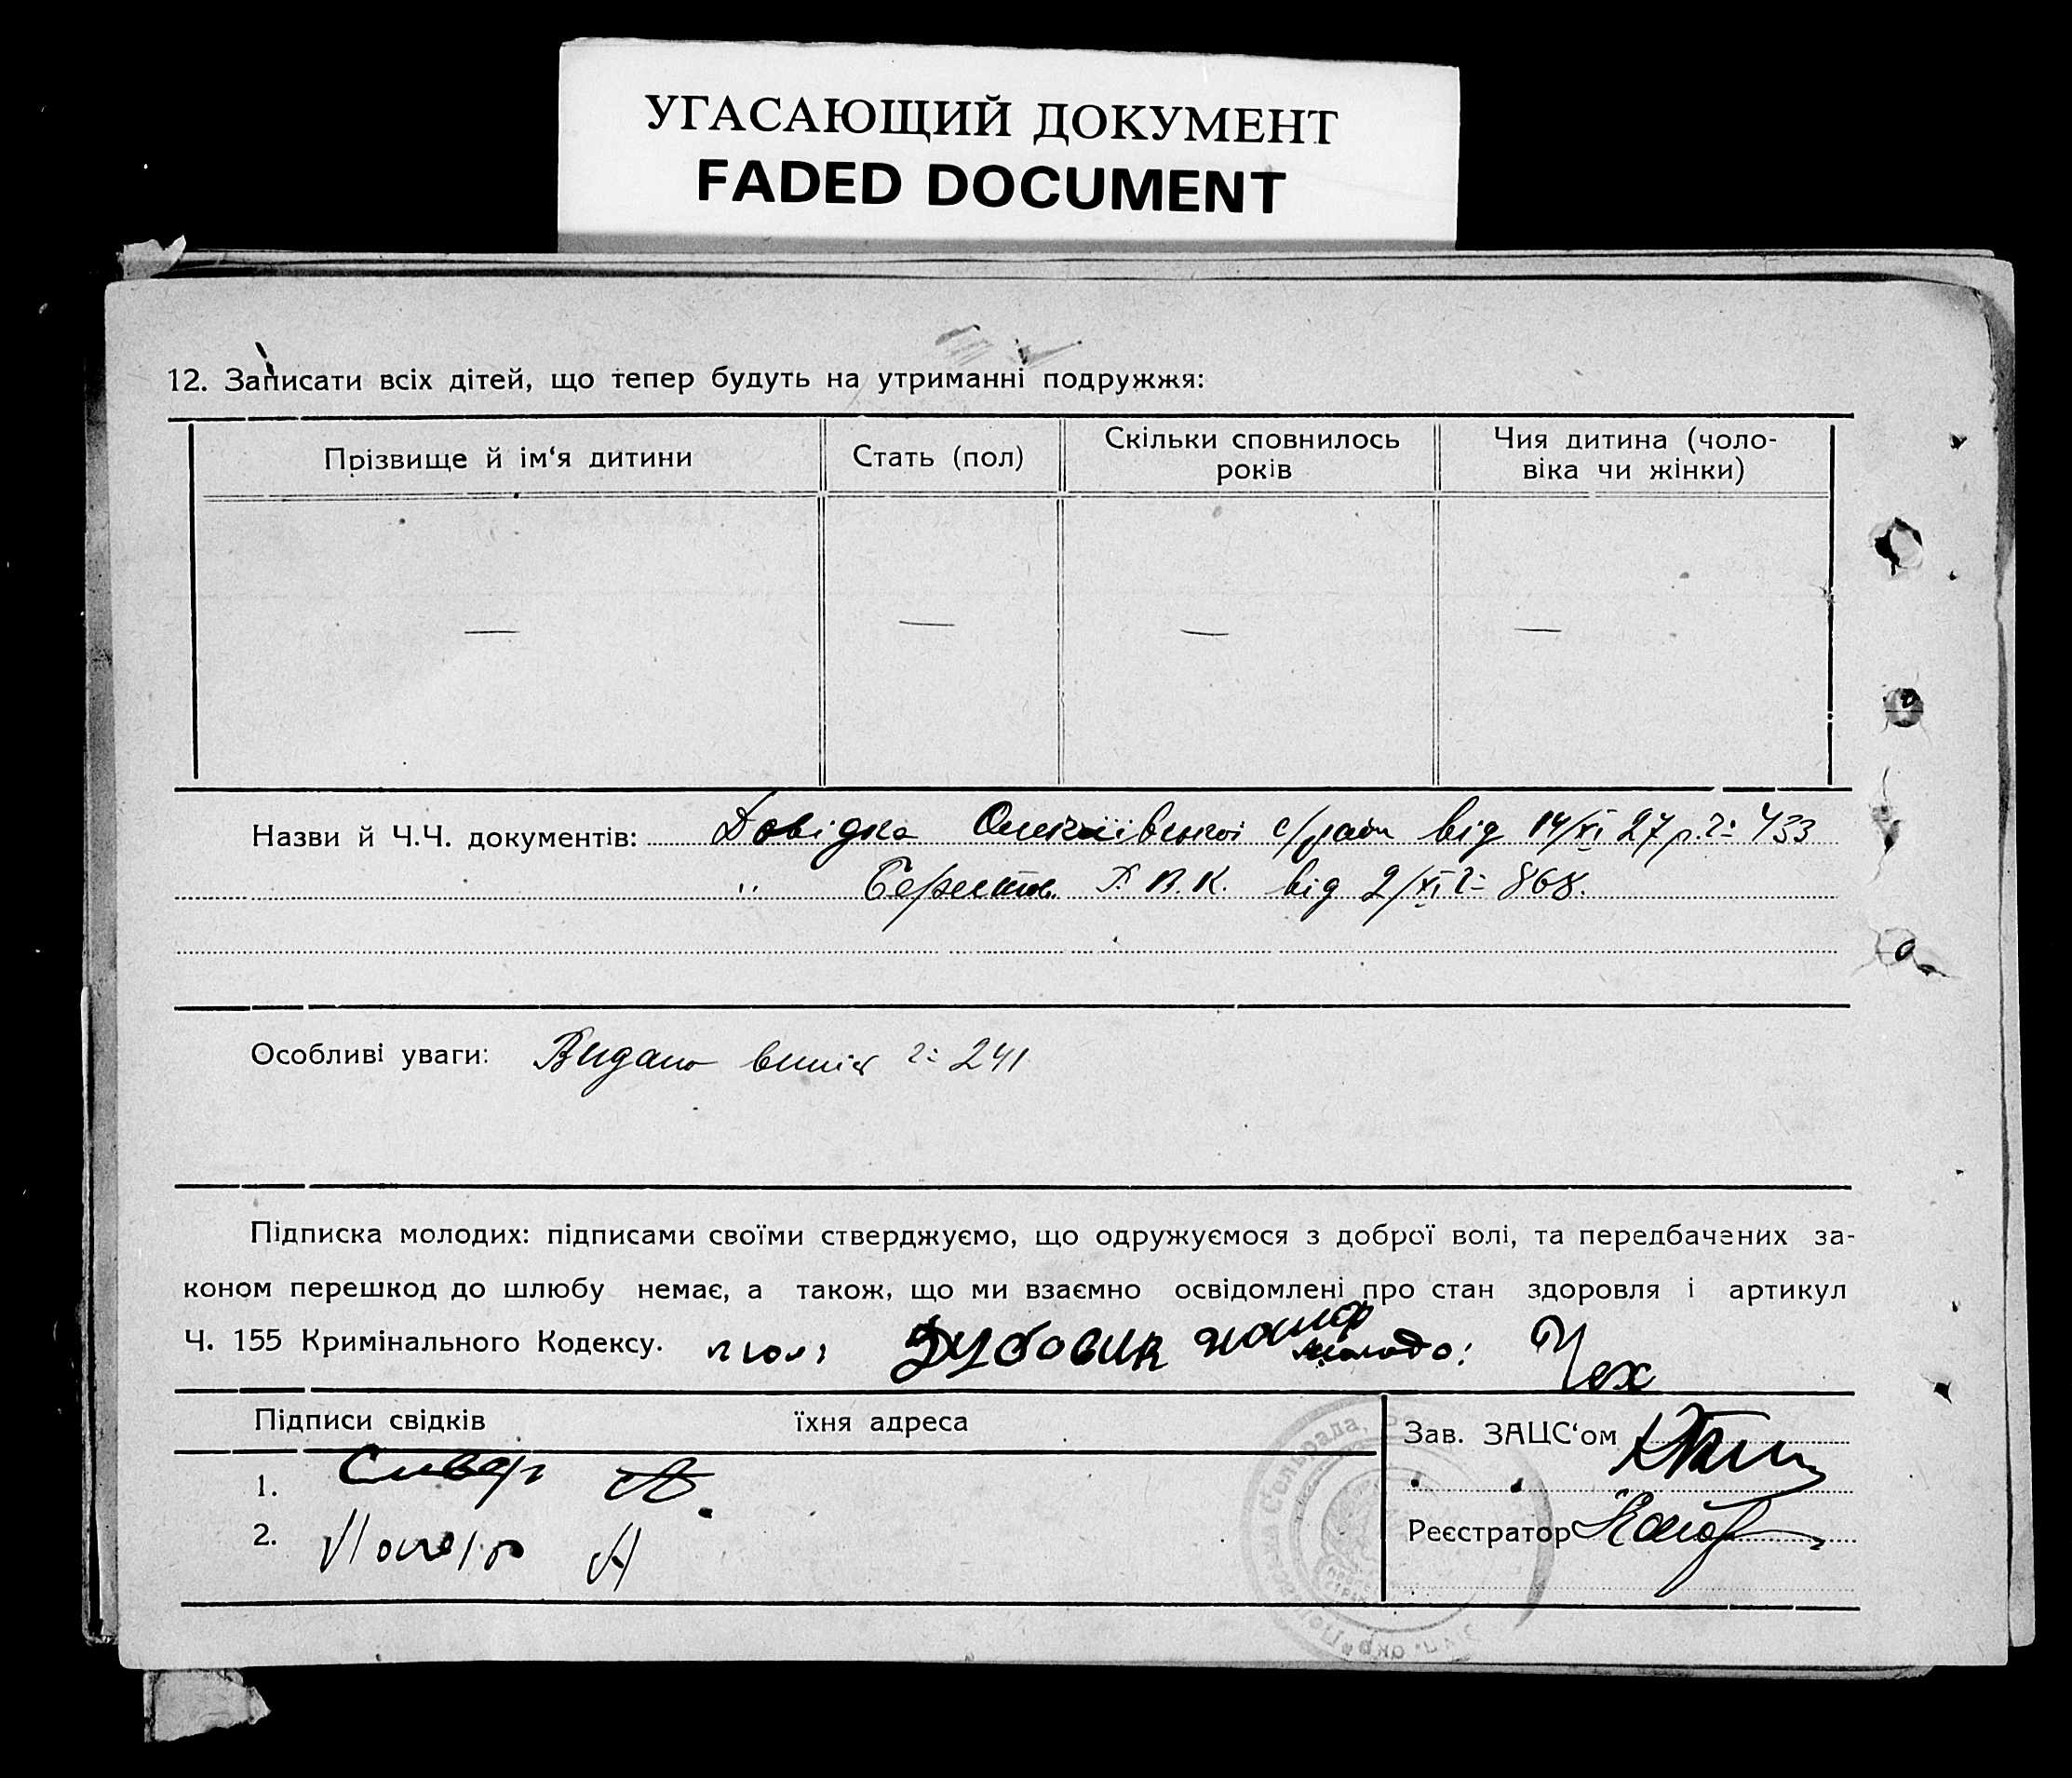 УГАСАЮЩИЙ ДОКУМЕНТ
FADED DOCUMENT
12. Записати всіх дітей, що тепер будуть на утриманні подружжя:
Прізвище й ім‘я дитини
Стать (пол)
Скільки сповнилось
років
Чия дитина (чоло-
віка чи жінки)
— — — —
Назви й Ч.Ч. документів: Довідка с/ради від 14/XI 27 р. ч. 433
" Берестов. Р.В.К. від 2/XI ч. 868.
Особливі уваги: Видано випис ч. 241
Підписка молодих: підписами своїми стверджуємо, що одружуємося з доброї волі, та передбачених за-
коном перешкод до шлюбу немає, а також, що ми взаємно освідомлені про стан здоровля і артикул
Ч. 155 Кримінального Кодексу. Дубовик молода: Чех
Підписи свідків
їхня адреса
1. А.
2. А
Зав. ЗАЦС‘ом
Реєстратор